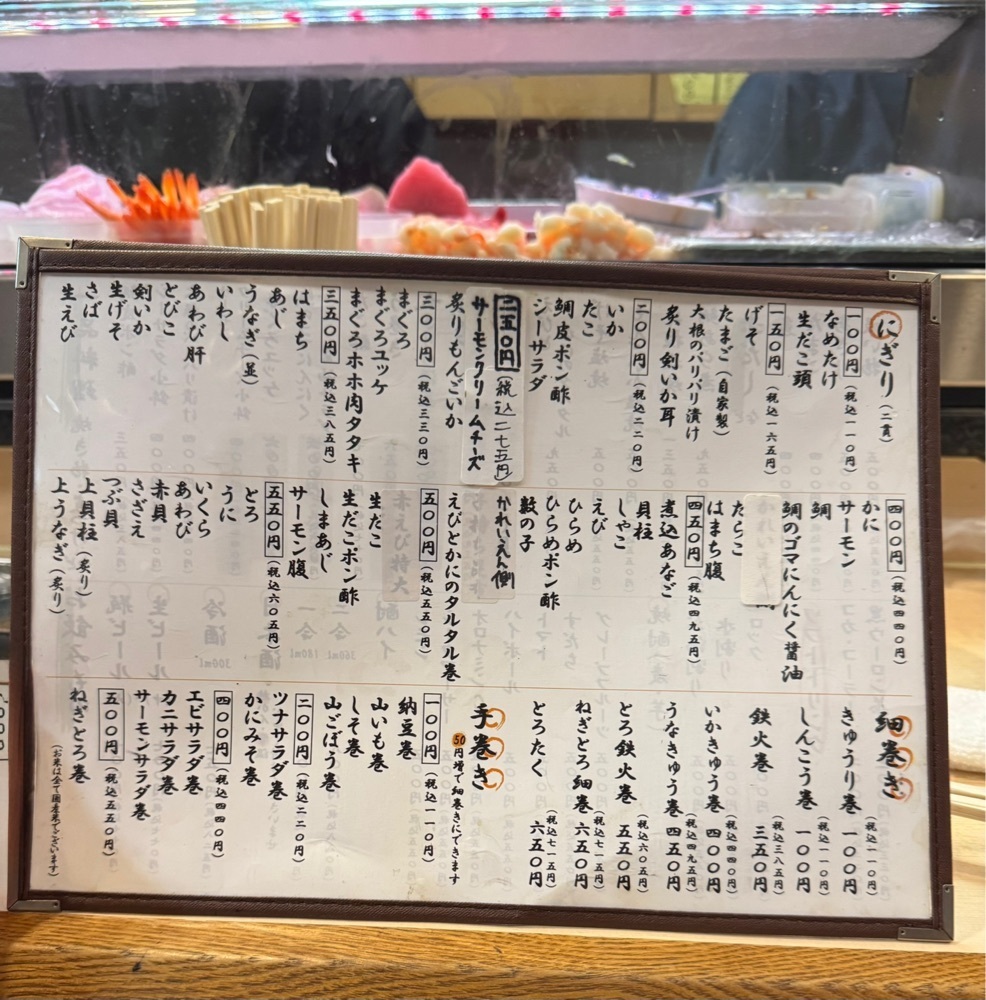 にぎり（二貫）
一〇〇円（税込一一〇円）
なめたけ
生だこ頭
一五〇円（税込一六五円）
げそ
たまご（自家製）
大根のパリパリ漬け
炙り剣いか耳
二〇〇円（税込二二〇円）
いか
たこ
鯛皮ポン酢
シーサラダ
二五〇円（税込二七五円）
サーモンクリームチーズ
炙りもんごいか
三〇〇円（税込三三〇円）
まぐろ
まぐろユッケ
まぐろホホ肉タタキ
三五〇円（税込三八五円）
はまち
あじ
うなぎ（並）
いわし
あわび肝
とびこ
剣いか
生げそ
さば
生えび
四〇〇円（税込四四〇円）
かに
サーモン
鯛
鯛のゴマにんにく醤油
たらこ
はまち腹
四五〇円（税込四九五円）
煮込あなご
貝柱
しゃこ
えび
ひらめ
ひらめポン酢
数の子
かれいえん側
えびとかにのタルタル巻
五〇〇円（税込五五〇円）
生たこ
生だこポン酢
しまあじ
サーモン腹
五五〇円（税込六〇五円）
とろ
うに
いくら
あわび
赤貝
さざえ
つぶ貝
上貝柱（炙り）
上うなぎ（炙り）
細巻き
きゅうり巻 一〇〇円（税込一一〇円）
しんこう巻 一〇〇円（税込一一〇円）
鉄火巻 三五〇円（税込三八五円）
いかきゅう巻 四〇〇円（税込四四〇円）
うなきゅう巻 四五〇円（税込四九五円）
とろ鉄火巻 五五〇円（税込六〇五円）
ねぎとろ細巻 六五〇円（税込七一五円）
とろたく 六五〇円（税込七一五円）
手巻き
50円増で細巻きにできます
一〇〇円（税込一一〇円）
納豆巻
山いも巻
しそ巻
山ごぼう巻
二〇〇円（税込二二〇円）
ツナサラダ巻
かにみそ巻
四〇〇円（税込四四〇円）
エビサラダ巻
カニサラダ巻
サーモンサラダ巻
五〇〇円（税込五五〇円）
ねぎとろ巻
（お米は全て国産米でございます）